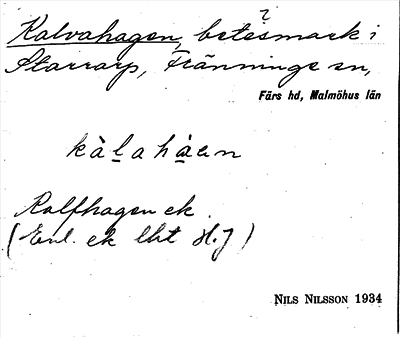 ?
Kalvahagen, betesmark i
Starrarp, Fränninge sn,
Färs hd, Malmöhus län
kàlahàen
Kalfhagen ek.
(Enl. ek lht H.J)
NILS NILSSON 1934